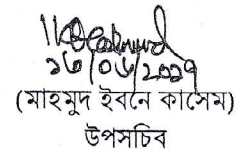 ১৬/০৬/২০১৭
(মাহমুদ ইবনে কাসেম)
উপসচিব